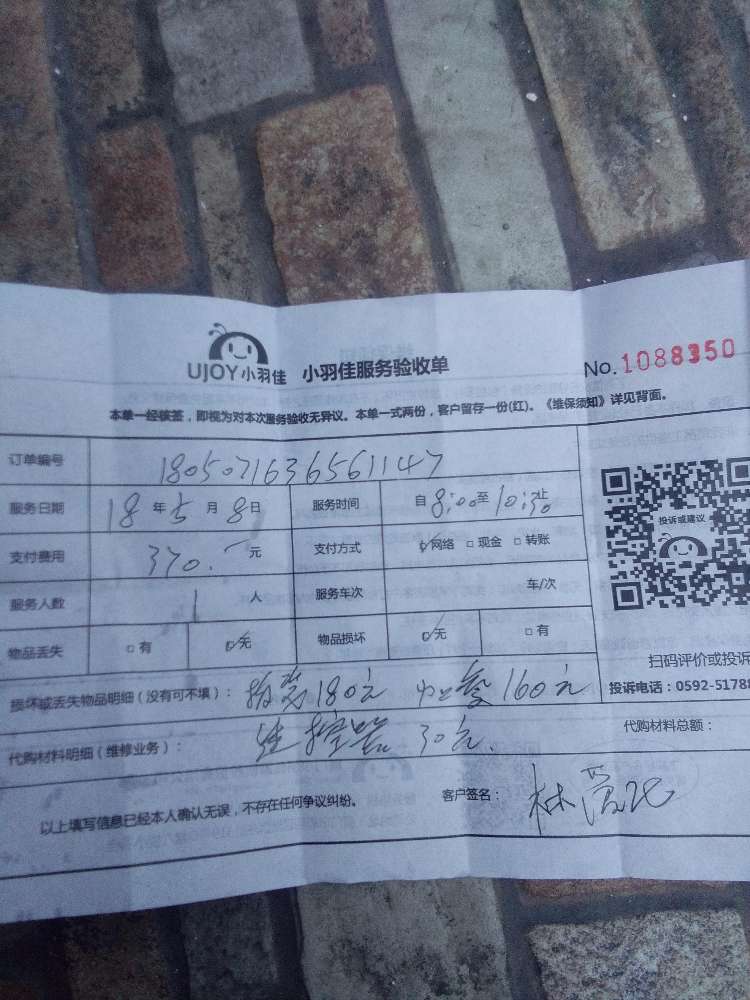 UJOY小羽佳 小羽佳服务验收单 No.1088350
本单一经核签，即视为对本次服务验收无异议。本单一式两份，客户留存一份(红)。《维保须知》详见背面。
订单编号 1805071636561147
服务日期 18年5月8日 服务时间 自8:00至10:30止
支付费用 370.一元 支付方式 ☑网络 □现金 □转账
服务人数 1人 服务车次 车/次
物品丢失 □有 ☑无 物品损坏 ☑无 □有
投诉或建议
扫码评价或投诉
投诉电话：0592-5178
损坏或丢失物品明细（没有可不填）： 180元 160元
代购材料明细（维修业务）： 遥控器 30元. 代购材料总额：
以上填写信息已经本人确认无误，不存在任何争议纠纷。 客户签名： 林